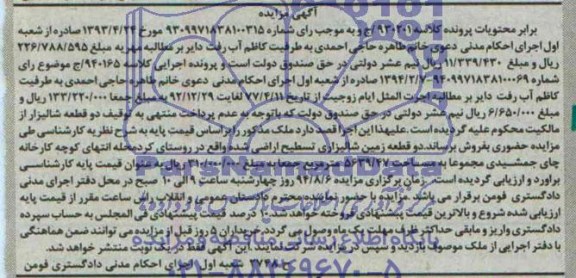 آگهی مزایده
برابر محتویات پرونده کلاسه ۹۳۰۲۰۱/ج و به موجب رای شماره ۹۳۰۹۹۷۱۸۳۸۱۰۰۳۱۵ مورخ ۱۳۹۳/۴/۲۴ صادره از شعبه
اول اجرای احکام مدنی دعوی خانم طاهره حاجی احمدی به طرفیت کاظم آب رفت دایر بر مطالبه مهریه مبلغ ۲۲۶/۷۸۸/۵۹۵
ریال و مبلغ ۱۱/۳۳۹/۴۳۰ ریال نیم عشر دولتی در حق صندوق دولت است و پرونده اجرایی کلاسه ۹۴۰۱۶۵/ج موضوع رای
شماره ۹۴۰۹۹۷۱۸۳۸۱۰۰۰۶۹-۱۳۹۴/۲/۷ صادره از شعبه اول اجرای احکام مدنی دعوی خانم طاهره حاجی احمدی به طرفیت
کاظم آب رفت دایر بر مطالبه اجرت المثل ایام زوجیت از تاریخ ۷۷/۶/۱۱ لغایت ۹۲/۱۲/۲۹ به مبلغ جمعا ۱۳۳/۲۲۰/۰۰۰ ریال و
مبلغ ۶/۶۵۰/۰۰۰ ریال نیم عشر دولتی در حق صندوق دولت که باتوجه به عدم پرداخت منتهی به توقیف دو قطعه شالیزار از
مالکیت محکوم علیه گردیده است. علیهذا این اجرا قصد دارد ملک مذکور را براساس قیمت پایه به شرح نظریه کارشناسی طی
مزایده حضوری بفروش برساند. دو قطعه زمین شالیزاری تسطیح اراضی شده واقع در روستای کردمحله انتهای کوچه کارخانه
چای جمشیدی مجموعا به مساحت ۵۶۳۹/۴۷ متر مربع جمعا به مبلغ ۳۱۰/۰۰۰/۰۰۰ ریال به عنوان قیمت پایه کارشناسی
براورد و ارزیابی گردیده است. زمان برگزاری مزایده ۹۴/۸/۶ روز چهارشنبه ساعت ۹ الی ۱۰ صبح در محل دفتر اجرای مدنی
دادگستری فومن برقرار می باشد. مزایده با حضور نماینده محترم دادستان عمومی و انقلاب راس ساعت مقرر از قیمت پایه
ارزیابی شده شروع و بالاترین قیمت پیشنهادی فروخته خواهد شد. ۱۰ درصد قیمت پیشنهادی فی المجلس به حساب سپرده
دادگستری واریز و مابقی حداکثر ظرف مهلت یک ماه وصول می گردد. خریداران ۵ روز قبل از مزایده می توانند ضمن هماهنگی
با دفتر اجرایی از ملک موصوف بازدید و سپس در مزایده شرکت نمایند. این آگهی فقط یک نوبت منتشر خواهد شد.
۳۷۴۸/ک شعبه اول اجرای احکام مدنی دادگستری فومن
ParsNamadData
۰۲۱-۸۸۳۴۹۶۷۰-۵